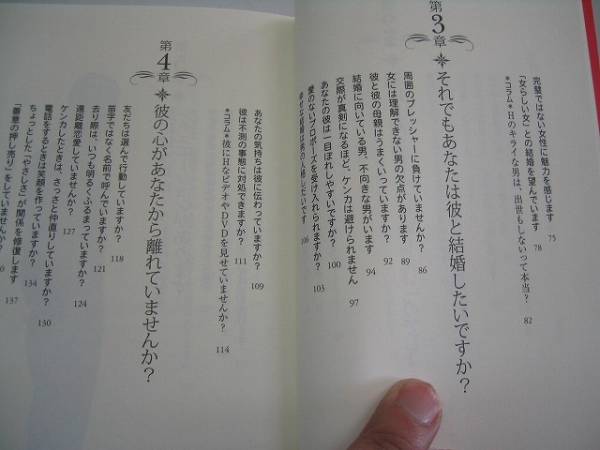 完璧ではない女性に魅力を感じます 75
「女らしい女」との結婚を望んでいます 78
＊コラム＊Hのキライな男は、出世もしないって本当？ 82
第3章 それでもあなたは彼と結婚したいですか？
周囲のプレッシャーに負けていませんか？ 86
女には理解できない男の欠点があります 89
彼と彼の母親はうまくいっていますか？ 92
結婚に向いている男、不向きな男がいます 94
交際が真剣になるほど、ケンカは避けられません 97
あなたの彼は一目ぼれしやすいですか？ 100
愛のないプロポーズを受け入れられますか？ 103
106
あなたの気持ちは彼に伝わっていますか？ 109
彼は不測の事態に対処できますか？ 111
＊コラム＊彼にHなビデオやDVDを見せていませんか？ 114
第4章 彼の心があなたから離れていませんか？
友だちは選んで行動していますか？ 118
苗字ではなく名前で呼んでいますか？ 121
去り際は、いつも明るくふるまっていますか？ 124
遠距離恋愛していませんか？ 127
ケンカしたときは、さっさと仲直りしていますか？ 130
電話をするときは笑顔を作っていますか？ 134
ちょっとした「やさしさ」が関係を修復します 137
「善意の押し売り」をしていませんか？